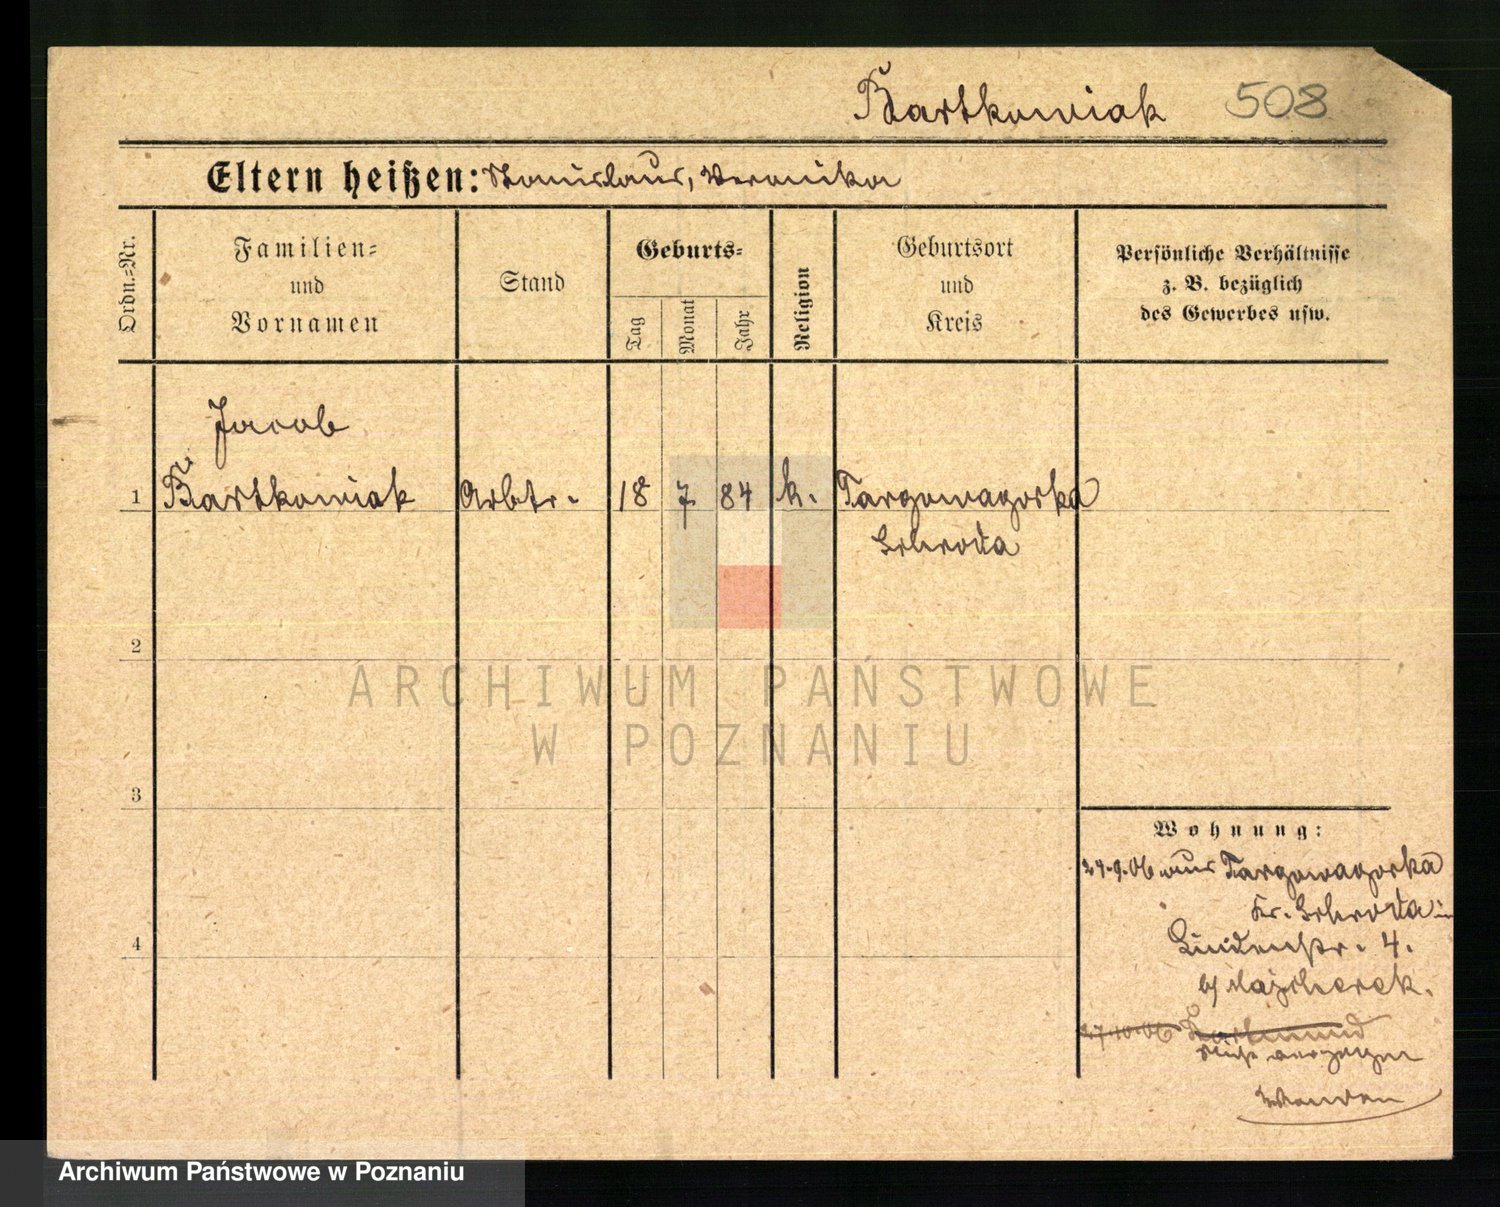 Bartkowiak 508
Eltern heißen: Stanislaus, Veronika
Ordn.=Nr.
Familien=
und
Vornamen
Stand
Geburts=
Tag
Monat
Jahr
Religion
Geburtsort
und
Kreis
Persönliche Verhältnisse
z. B. bezüglich
des Gewerbes usw.
Jacob
1 Bartkowiak Arbtr. 18 7 84 k. Targowagorka
Schroda
2
ARCHIWUM PAŃSTWOWE
W POZNANIU
3
Wohnung:
24.9.06 aus Targowagorka
Kr. Schroda in
Lindenstr. 4.
b/ Majcherek.
27.10.06 Dortmund
nicht verzogen
Wenden
4
Archiwum Państwowe w Poznaniu